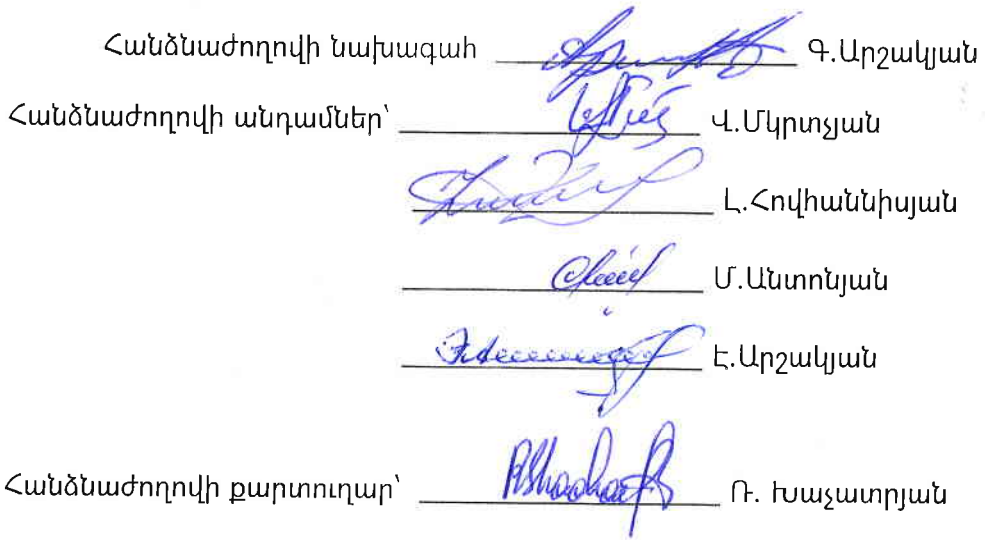 Հանձնաժողովի նախագահ Գ.Արշակյան
Հանձնաժողովի անդամներ՝ Վ.Մկրտչյան
Լ.Հովհաննիսյան
Մ.Անտոնյան
Է.Արշակյան
Հանձնաժողովի քարտուղար՝ Ռ. Խաչատրյան